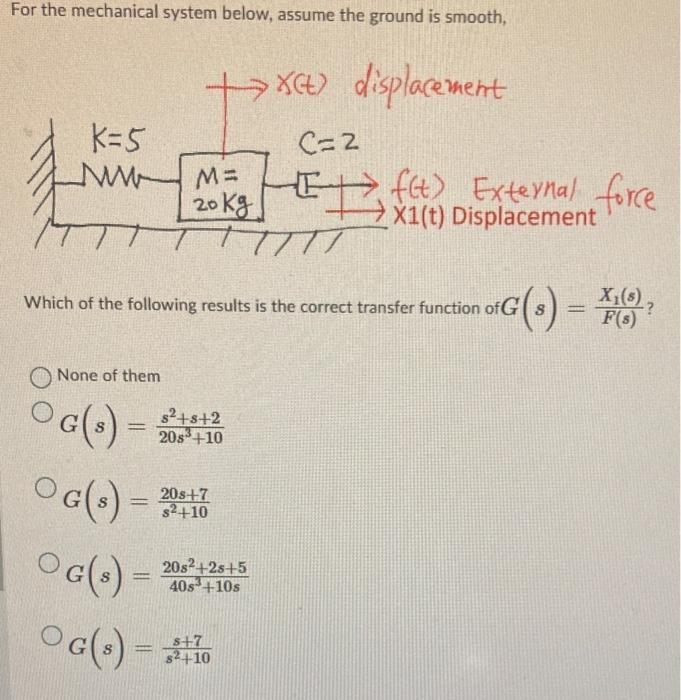 For the mechanical system below, assume the ground is smooth,
x(t) displacement
K=5
C=2
M=
20 Kg
f(t) External force
X1(t) Displacement
Which of the following results is the correct transfer function of G(s) = X₁(s)/F(s)?
None of them
G(s) = s²+s+2/20s³+10
G(s) = 20s+7/s²+10
G(s) = 20s²+2s+5/40s³+10s
G(s) = s+7/s²+10